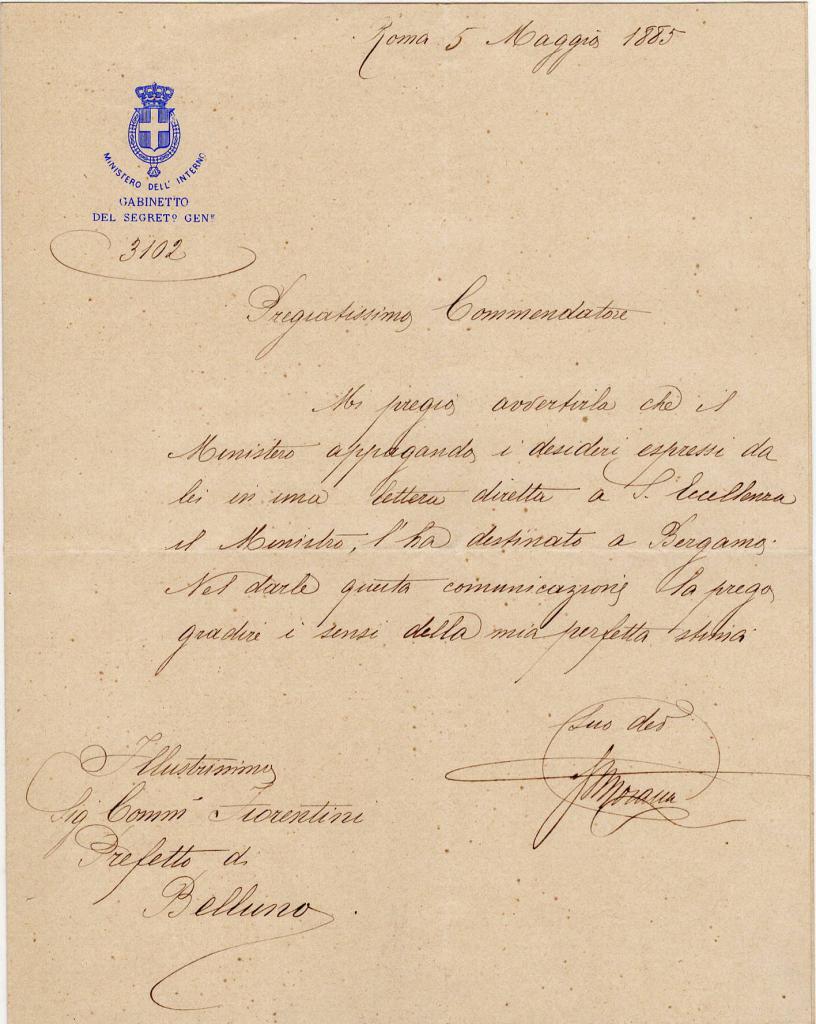 Roma 5 Maggio 1885
MINISTERO DELL' INTERNO
GABINETTO
DEL SEGRETº GENᴱ
3102
Pregiatissimo Commendatore
Mi pregio avvertirla che il
Ministero appagando i desideri espressi da
lei in una lettera diretta a S. Eccellenza
il Ministro, l'ha destinato a Bergamo.
Nel darle questa comunicazione la prego
gradire i sensi della mia perfetta stima
Suo dev
Morana
Illustrissimo
Sig Comm Fiorentini
Prefetto di
Belluno